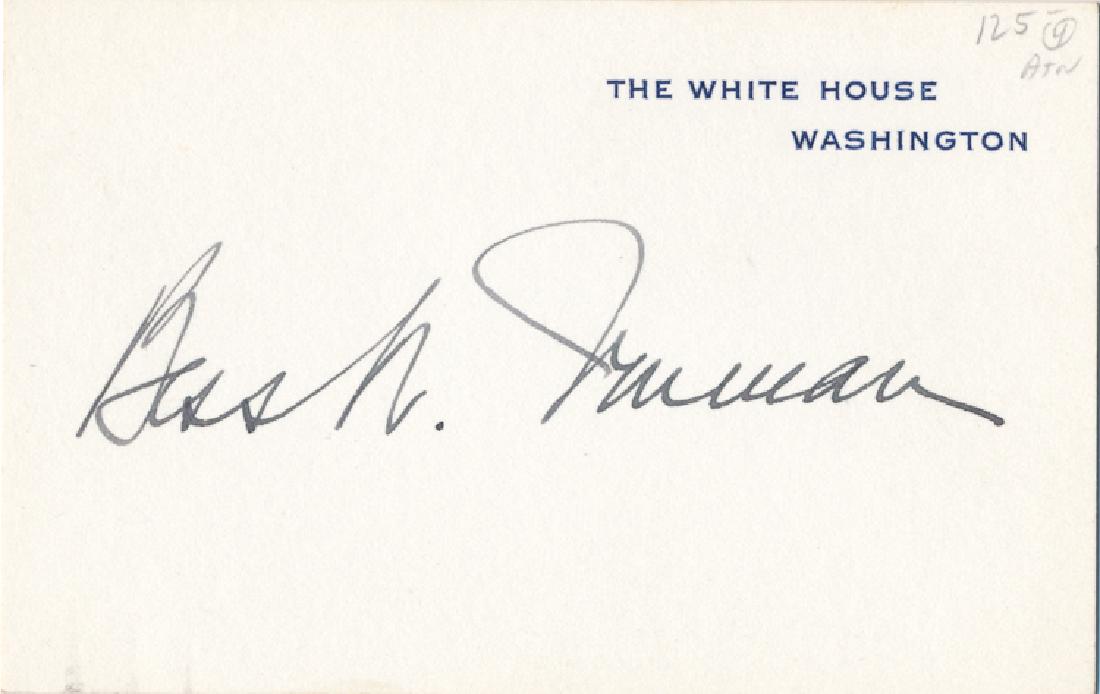 125
THE WHITE HOUSE
WASHINGTON
Bess W. Truman